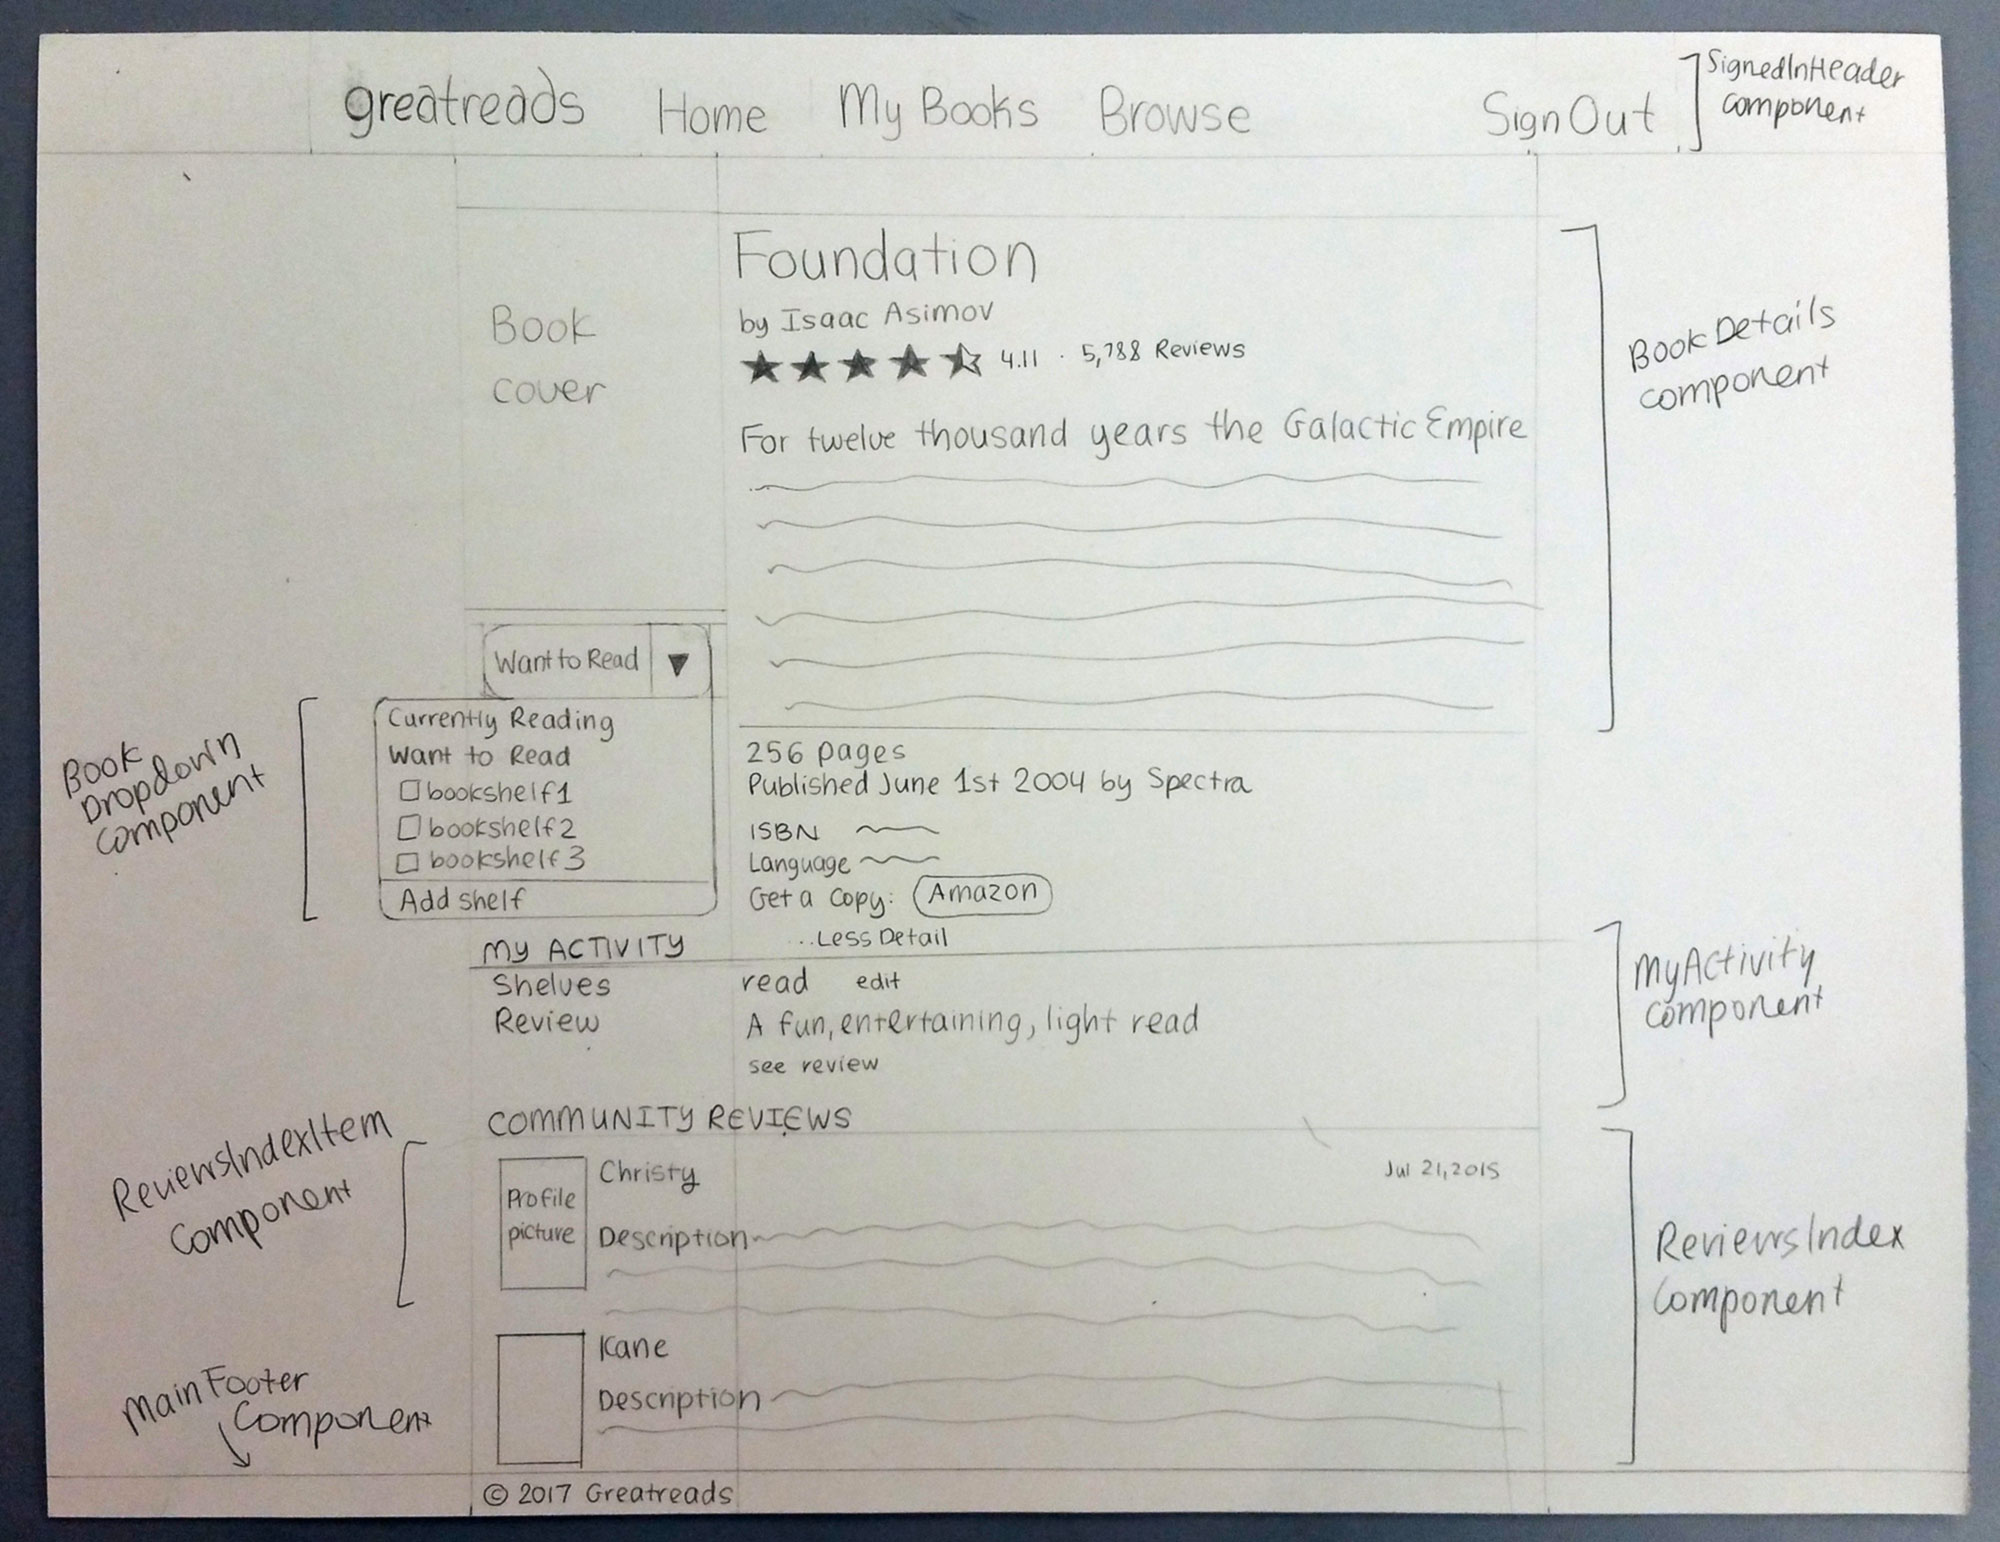 greatreads Home My Books Browse Sign Out
SignedInHeader
component
Foundation
by Isaac Asimov
4.11 · 5,788 Reviews
For twelve thousand years the Galactic Empire
Book
cover
BookDetails
component
Want to Read ▼
Currently Reading
Want to Read
bookshelf1
bookshelf2
bookshelf3
Add shelf
Book
Dropdown
component
256 pages
Published June 1st 2004 by Spectra
ISBN
Language
Get a Copy: Amazon
..Less Detail
MY ACTIVITY
Shelves read edit
Review A fun, entertaining, light read
see review
MyActivity
component
COMMUNITY REVIEWS
ReviewsIndexItem
component
Profile
picture
Christy Jul 21, 2015
Description
ReviewsIndex
component
Kane
Description
MainFooter
component
© 2017 Greatreads